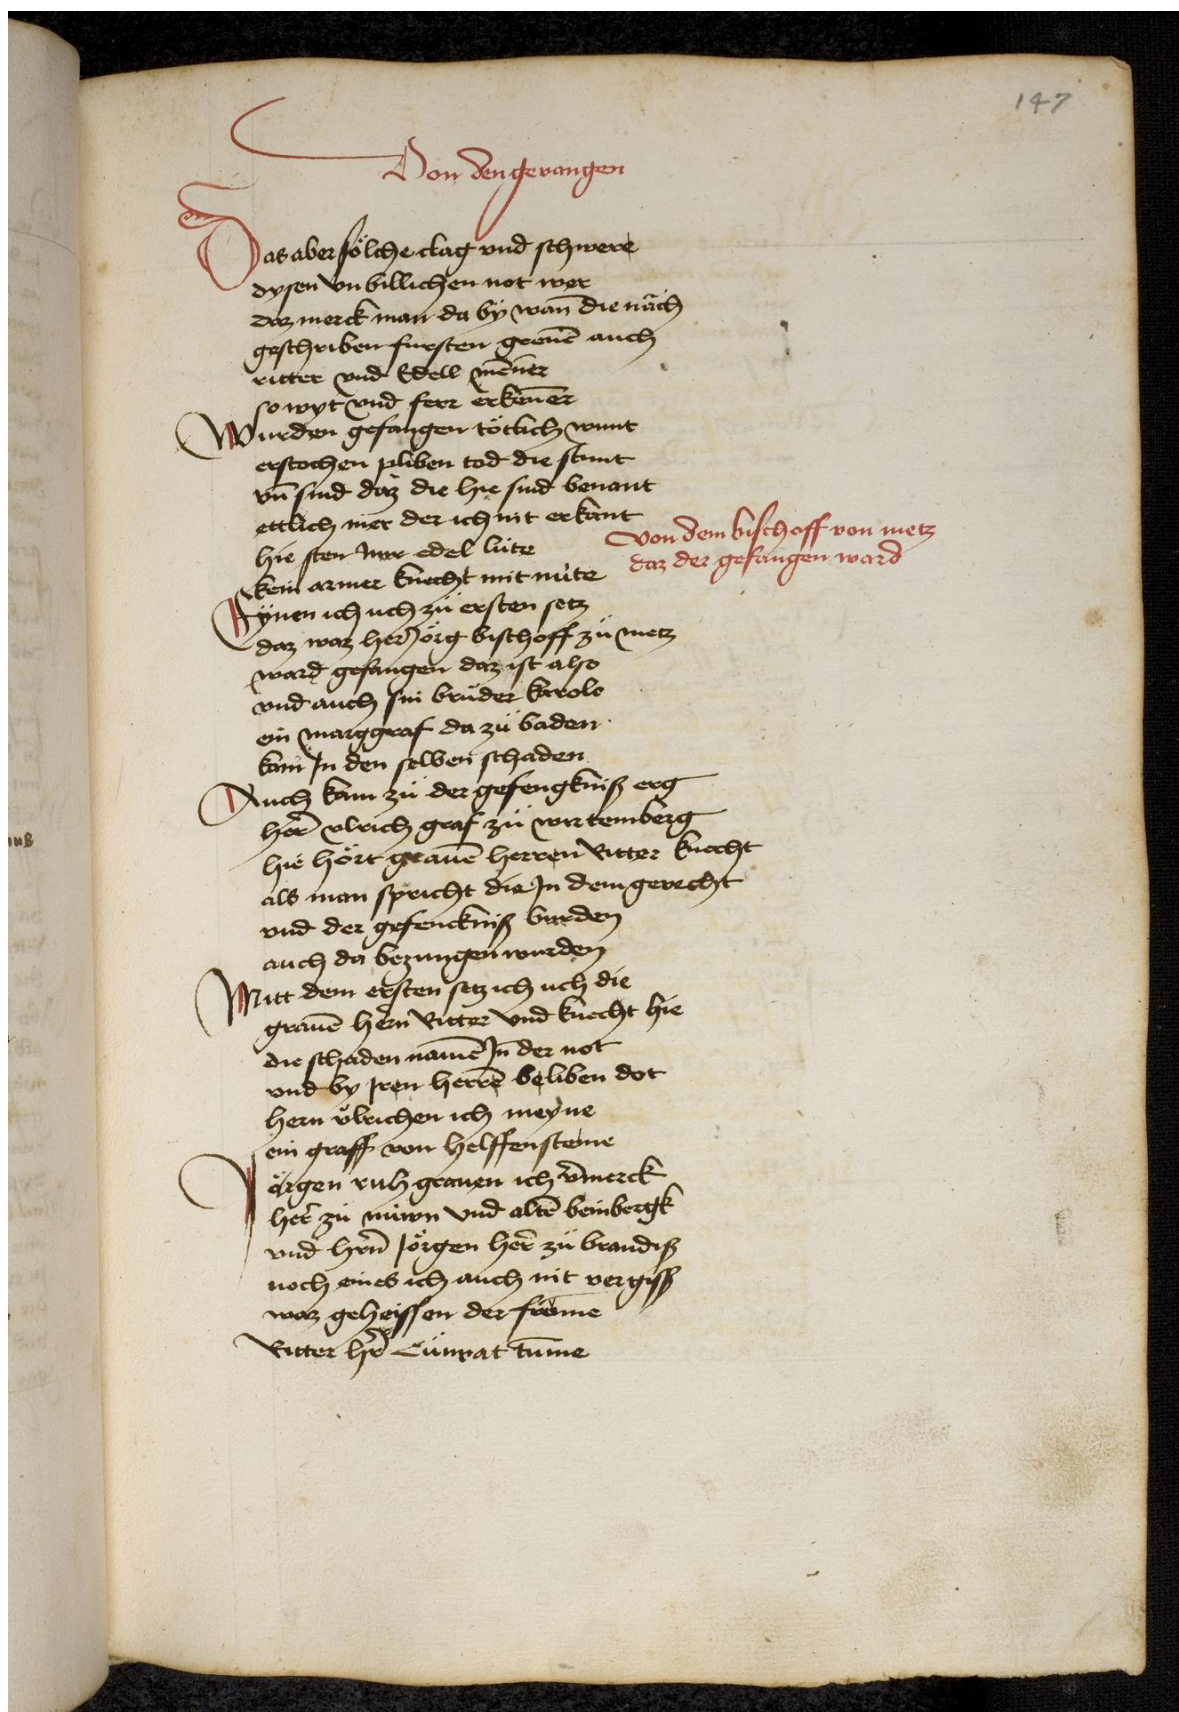 147
Von den gevangen
Das aber sölche clag vnd schwere
dysen vnbillichen not wer
daz merck man da by wañ die näch
geschriben fursten greuẽ auch
ritter vnd Edell mẽner
so wyt vnd ferr erkẽner
Wurden gefangen tötlich wunt
erstochen pliben tod die stunt
vñ sind daz die hie sind benant
ettlich mer der ich nit erkant
hie sten nwr edel lüte
kein armer knecht mit nüte
von dem bischoff von metz
daz der gefangen ward
Eÿnen ich uch zü ersten setz
daz waz her Jörg bischoff zü metz
ward gefangen daz ist also
vnd auch sin brüder karolo
ein marggraf da zü baden
kam Jn den selben schaden
Auch kam zü der gefengkniß erg
her̃ vlrich graf zü wirtemberg
hie hört grauẽ herren Ritter knecht
als man spricht die Jn dem gerecht
vnd der gefenckniß burden
auch da bezwngen wurden
Mitt dem ersten setz ich uch die
grauẽ hern Ritter vnd knecht hie
die schaden namẽ Jn der not
vnd by Jren herrẽ beliben dot
hern vlrichen ich meyne
ein graff von helffensteine
Jörgen ruh grauen ich v̈merck
her̃ zü nüwn vnd altẽ beinbergk
vnd hrñ Jörgen her̃ zü brandiß
noch eines ich auch nit vergiss
waz geheissen der from̃e
Ritter hr̃ Cünrat tum̃e